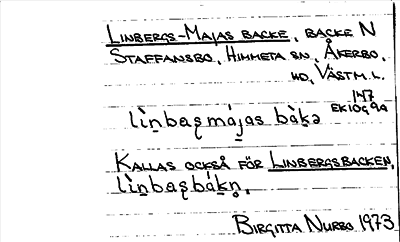 LINBERGS-MAJAS BACKE, BACKE N
STAFFANSBO, HIMMETA SN, ÅKERBO,
HD, VÄSTM. L.
147
EK10G9a
lìṉbaʂmájas bàḵə
KALLAS OCKSÅ FÖR LINBERGSBACKEN,
lìṉbaʂbáḵn̥.
BIRGITTA NURBO 1973